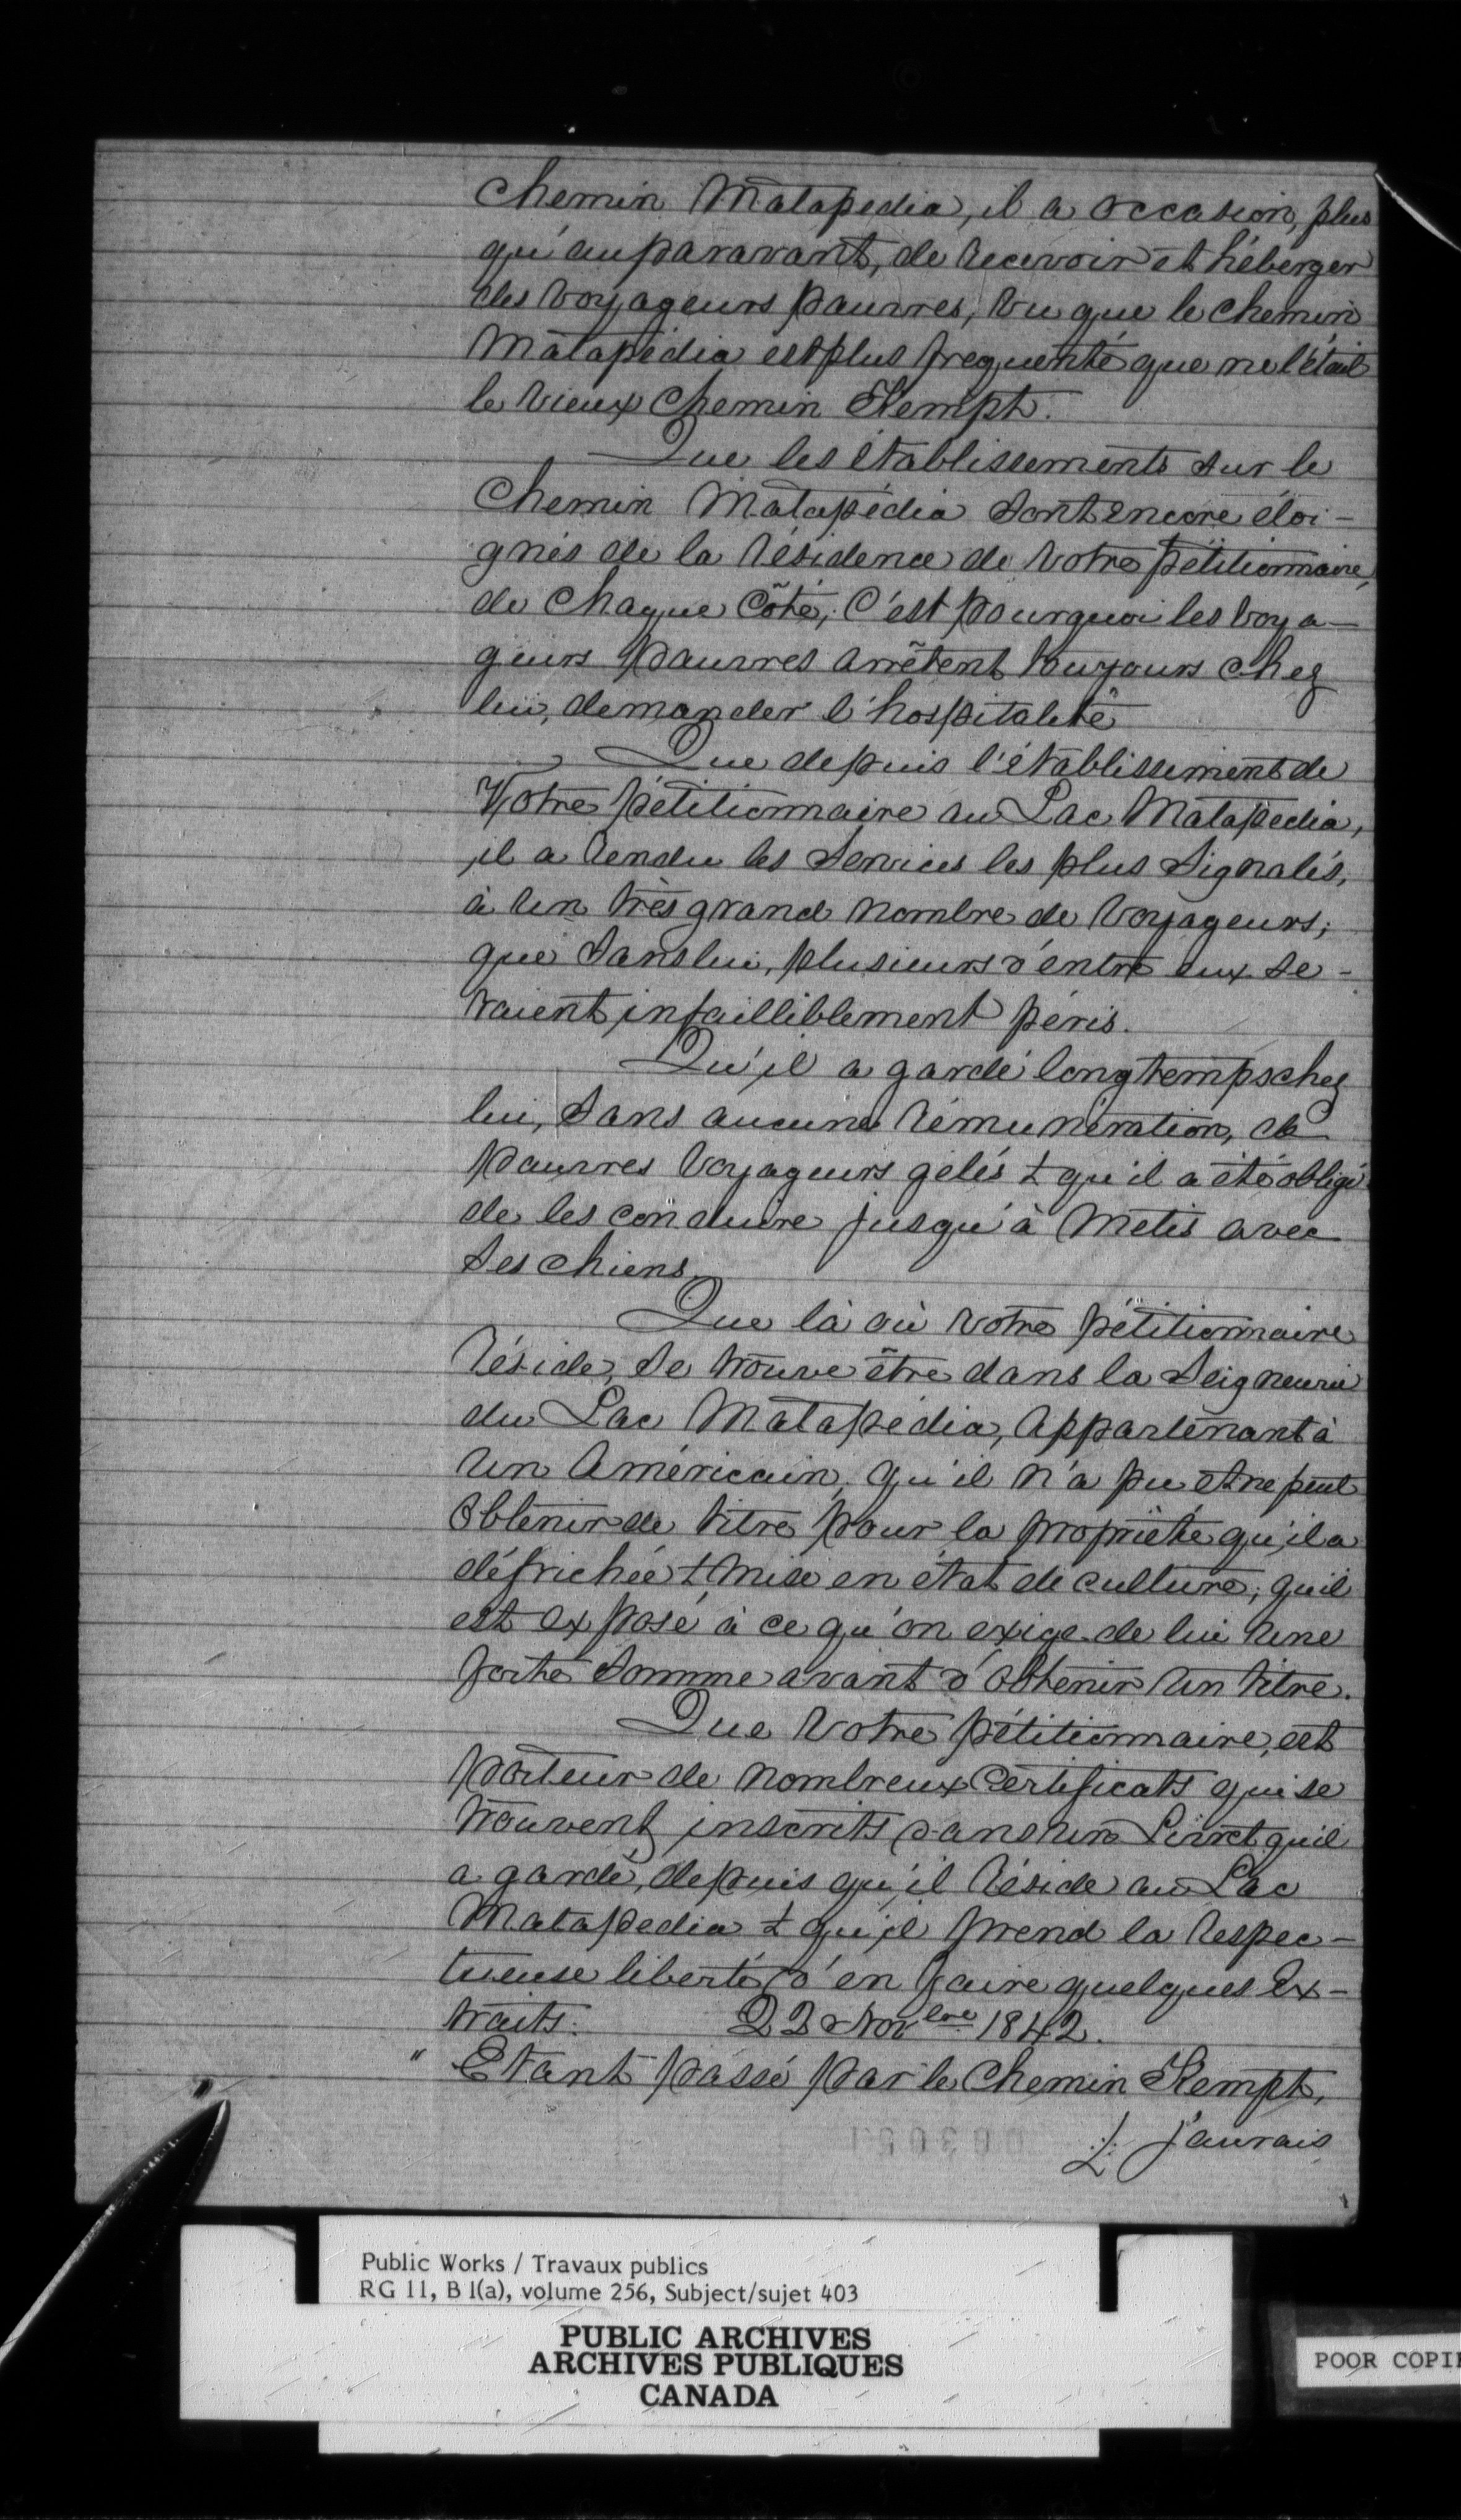 Chemin Matapedia, il a occasion, plus
qu'auparavant, de recevoir et héberger
des voyageurs pauvres, vu que le chemin
Matapédia est plus frequenté que ne l'était
le vieux chemin Kempt.
Que les établissements sur le
Chemin Matapédia sont encore éloi-
gnés de la résidence de votre pétitionnaire,
de chaque côté; c'est pourquoi les voya-
geurs pauvres arrêtent toujours chez
lui, demander l'hospitalité
Que depuis l'établissement de
Votre pétitionnaire au Lac Matapedia,
il a rendu les services les plus signalés,
à un très grand nombre de voyageurs;
que sans lui, plusieurs d'entre eux se-
raient infailliblement péris.
Qu'il a gardé longtemps chez
lui, sans aucune rémunération, de
pauvres voyageurs gelés & qu'il a été obligé
de les conduire jusqu'à Metis avec
ses chiens.
Que là où votre pétitionnaire
réside, se trouve être dans la Seigneurie
du Lac Matapédia, appartenant à
un Américain, qu'il n'a pu et ne peut
obtenir de titre pour la propriété qu'il a
défrichée & mise en état de culture; qu'il
est exposé à ce qu'on exige de lui une
forte somme avant d'obtenir un titre.
Que votre pétitionnaire, est
porteur de nombreux certificats qui se
trouvent inscrits dans un Livret qu'il
a gardé, depuis qu'il réside au Lac
Matapedia & qu'il prend la respec-
tueuse liberté d'en faire quelques ex-
traits. 22 Novbre 1842.
" Etant passé par le chemin Kempt,
j'aurais
003081
Public Works / Travaux publics
RG 11, B 1(a), volume 256, Subject/sujet 403
PUBLIC ARCHIVES
ARCHIVES PUBLIQUES
CANADA
POOR COPI